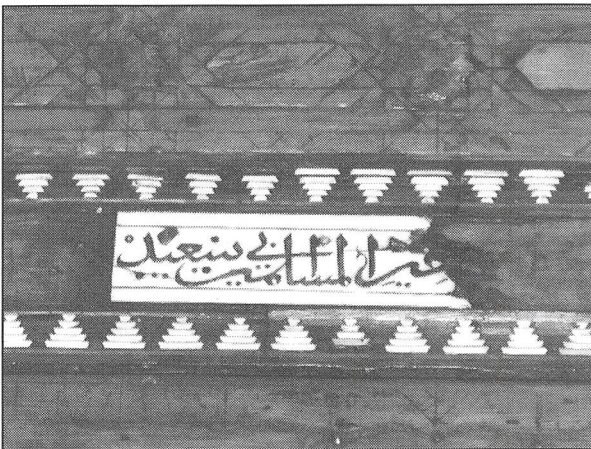 مير المسلمين ابي سعيد